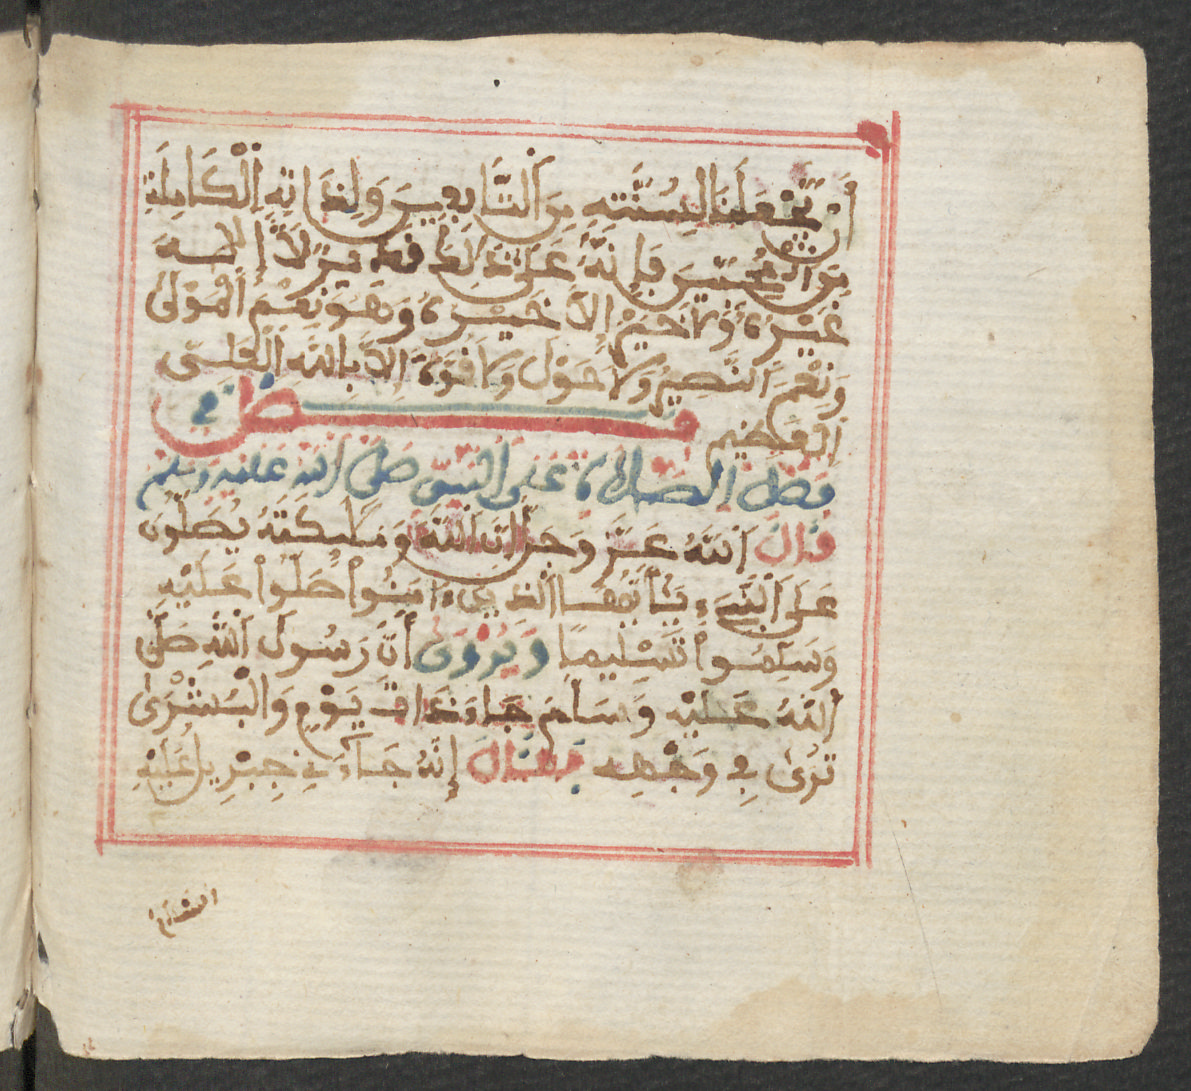 أَنْ تَجْعَلَنَا لِسُنَّتِهِ مِنَ ٱلتَّابِعِينَ وَلِذَاتِهِ ٱلْكَامِلَةِ
مِنَ ٱلْمُحِبِّينَ فَإِنَّهُ عَلَىٰ ذَٰلِكَ قَدِيرٌ لَآ إِلَٰهَ
غَيْرُهُ وَلَا خَيْرَ إِلَّا خَيْرُهُ وَهُوَ نِعْمَ ٱلْمَوْلَىٰ
وَنِعْمَ ٱلنَّصِيرُ وَلَا حَوْلَ وَلَا قُوَّةَ إِلَّا بِاللَّهِ ٱلْعَلِيِّ
ٱلْعَظِيمِ فصل في
فضل الصلاة على النبي صلى الله عليه وسلم
قال اللَّهُ عَزَّ وَجَلَّ إن الله وَمَلَٰٓئِكَتَهُ يُصَلُّونَ
عَلَى ٱلنَّبِيِّ يَٰٓأَيُّهَا ٱلَّذِينَ ءَامَنُوا صَلُّوا عَلَيْهِ
وَسَلِّمُوا تَسْلِيمًا وَيُرْوَىٰ أَنَّ رَسُولَ ٱللَّهِ صَلَّى
ٱللَّهُ عَلَيْهِ وَسَلَّمَ جَاءَ ذَاتَ يَوْمٍ وَالْبُشْرَىٰ
تُرَىٰ فِي وَجْهِهِ فقال إِنَّهُ جَاءَنِي جِبْرِيلُ عَلَيْهِ
السلام